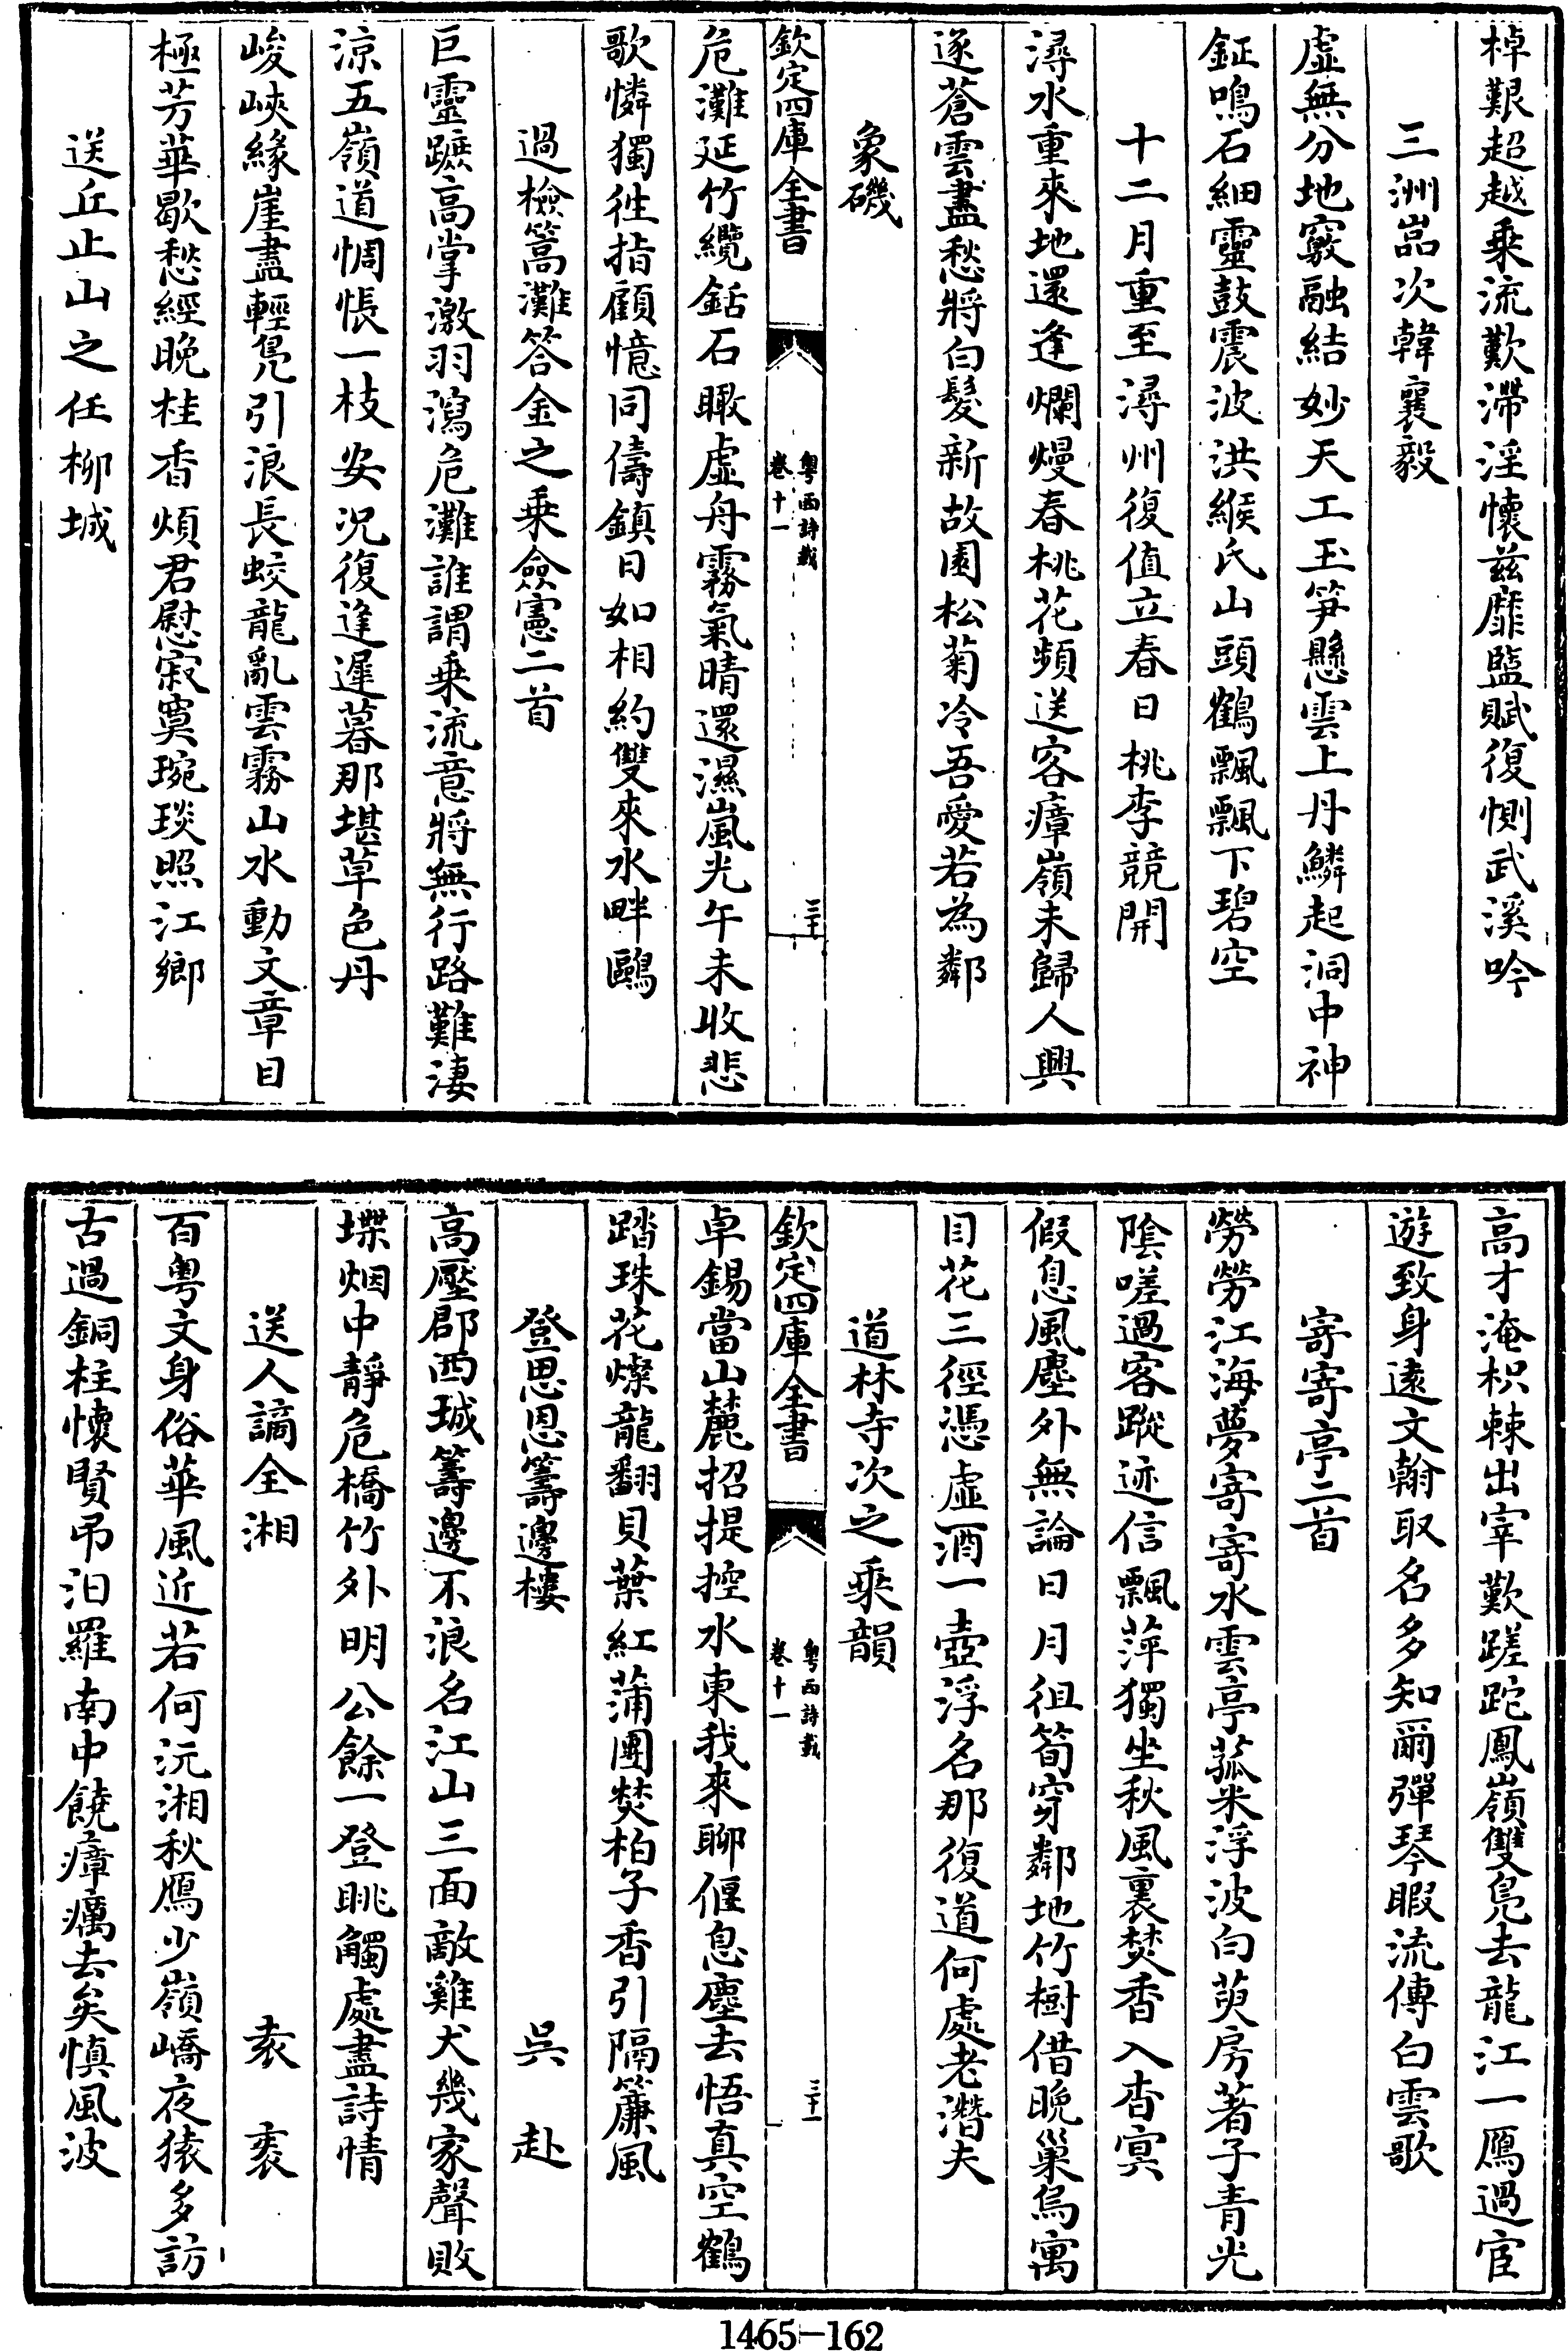 棹艱超越乘流歎滯淫懷兹靡盬賦復惻武溪吟
三洲嵓次韓襄毅
虛無分地竅融結妙天工玉笋懸雲上丹鱗起洞中神
鉦鳴石細靈鼓震波洪緱氏山頭鶴飄飄下碧空
十二月重至潯州復值立春日桃李競開
潯水重來地還逢爛熳春桃花頻送客瘴嶺未歸人興
逐蒼雲盡愁將白髮新故園松菊冷吾愛若為鄰
象磯
欽定四庫全書
粤西詩載
卷十一
三十
危灘延竹纜銛石瞰虛舟霧氣晴還濕嵐光午未收悲
歌憐獨往指顧憶同儔鎮日如相約雙來水畔鷗
過檢篙灘答金之乗僉憲二首
巨靈蹠高掌激羽瀉危灘誰謂乗流意將無行路難淒
涼五嶺道惆悵一枝安况復逢遲暮那堪草色丹
峻峽緣崖盡輕鳬引浪長蛟龍亂雲霧山水動文章目
極芳華歇愁經晚桂香煩君慰寂寞琬琰照江鄉
送丘止山之任柳城
高才淹枳棘出宰歎蹉跎鳳嶺雙鳬去龍江一鴈過宦
遊致身遠文翰取名多知爾彈琴暇流傳白雲歌
寄寄亭二首
勞勞江海夢寄寄水雲亭菰米浮波白茰房著子青光
陰嗟過客蹤迹信飄萍獨坐秋風裏焚香入杳冥
假息風塵外無論日月徂筍穿鄰地竹樹借晚巢烏寓
目花三徑憑虛酒一壺浮名那復道何處老潛夫
道林寺次之乘韻
欽定四庫全書
粤西詩載
卷十一
三十一
卓錫當山麓招提控水東我來聊偃息塵去悟真空鶴
踏珠花燦龍翻貝葉紅蒲團焚柏子香引隔簾風
登思恩籌邊樓
吳赴
高壓郡西城籌邊不浪名江山三面敵雞犬幾家聲敗
堞烟中靜危橋竹外明公餘一登眺觸處盡詩情
送人謫全湘
袁袠
百粤文身俗華風近若何沅湘秋鴈少嶺嶠夜猿多訪
古過銅柱懷賢弔汨羅南中饒瘴癘去矣慎風波
1465-162